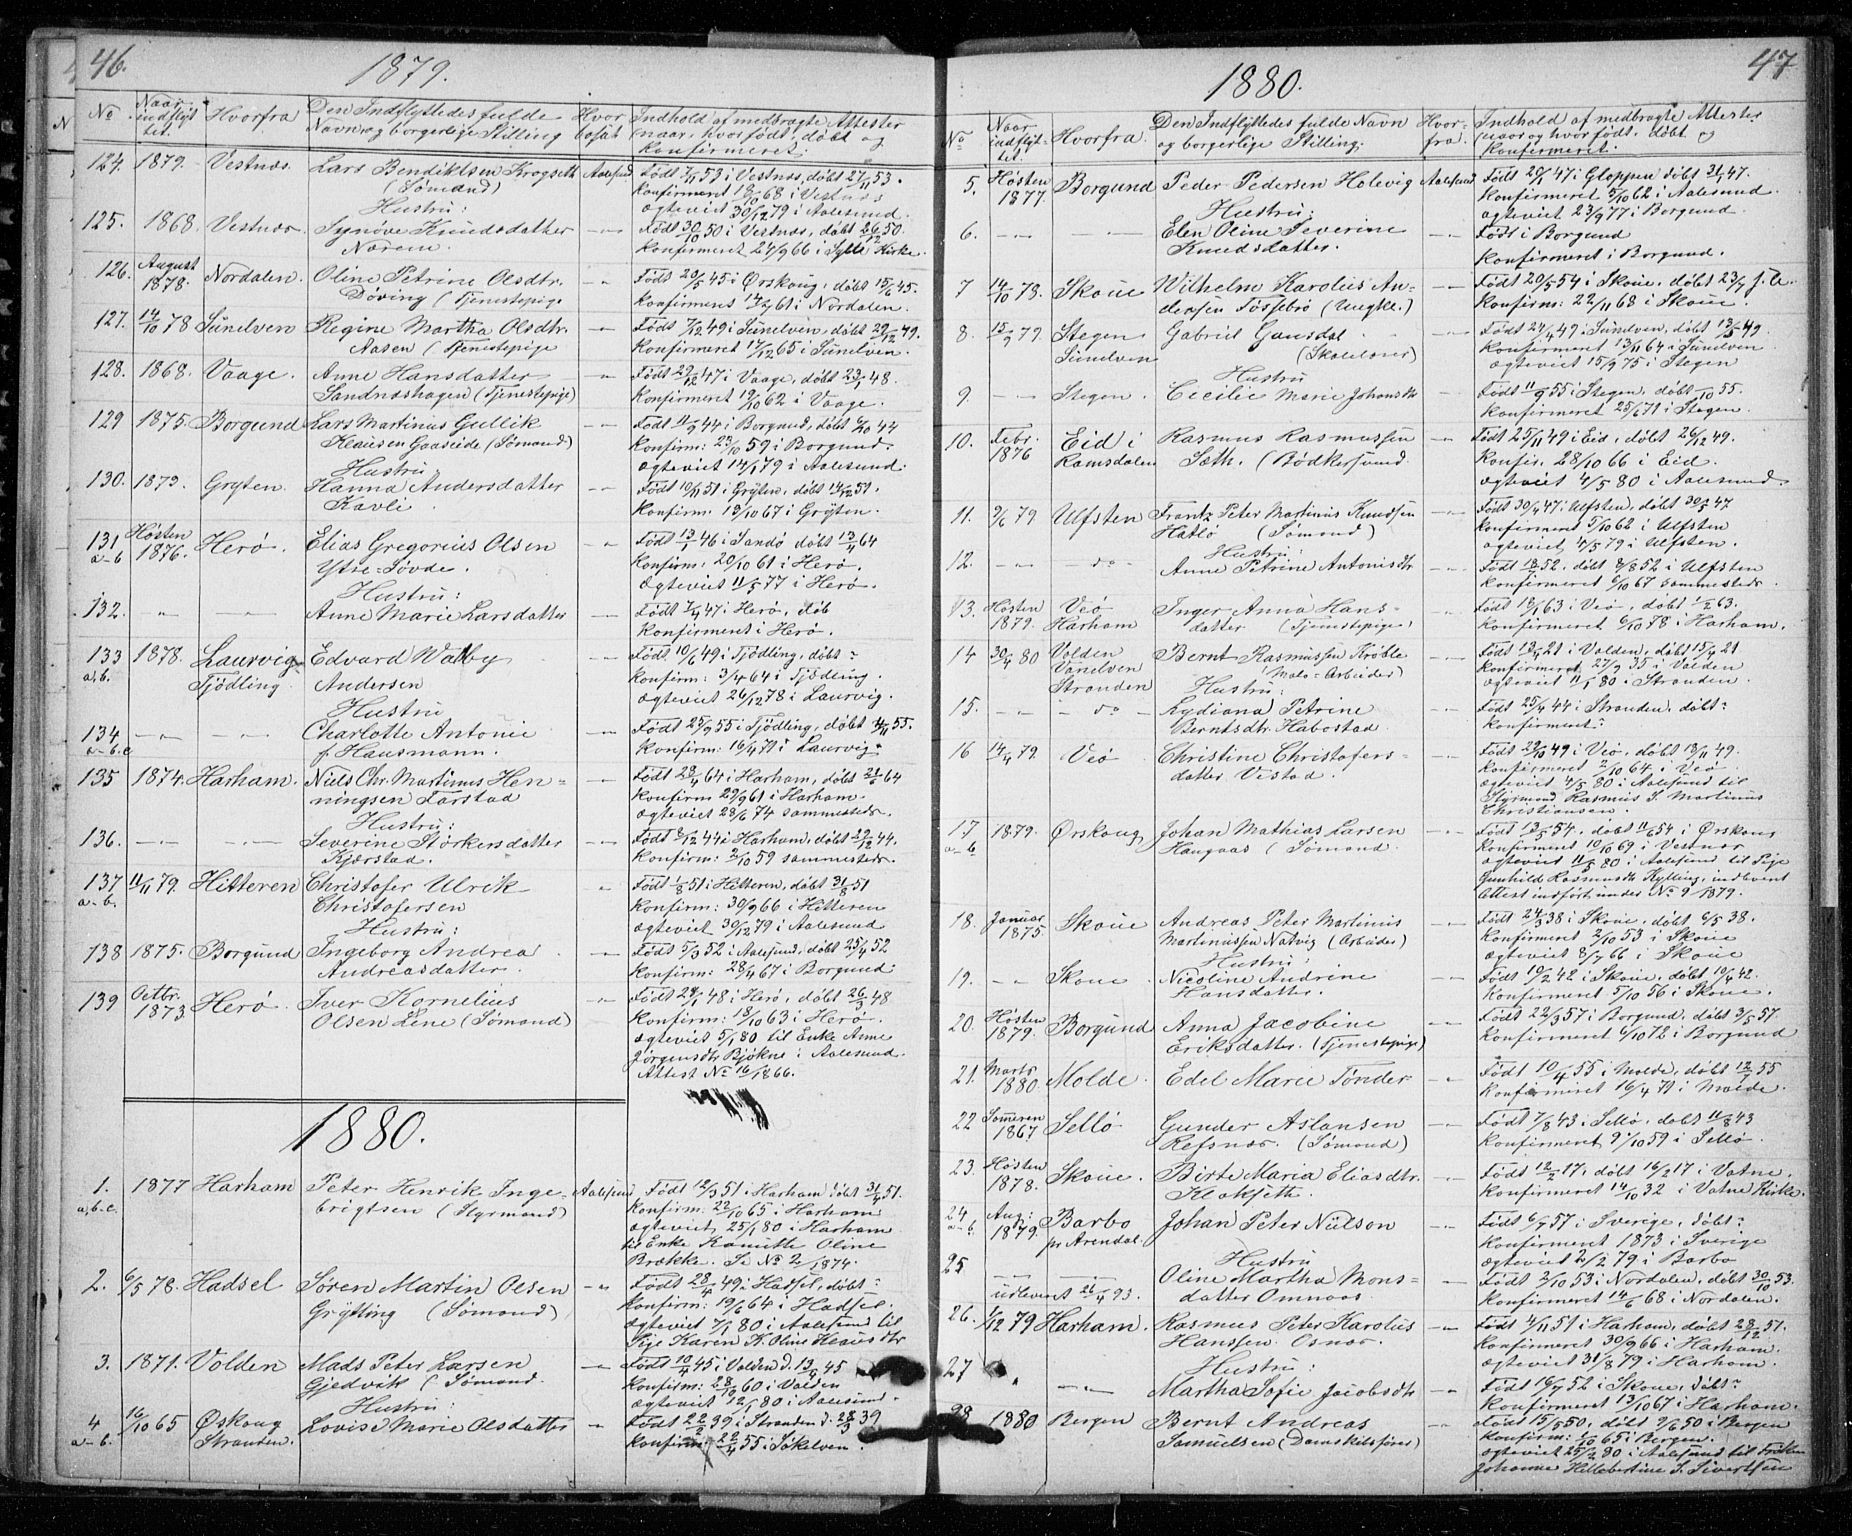 46.
1879.
No Naar indflyttet. Hvorfra Den Indflyttedes fulde Navn og borgerlige Stilling Hvor bosat Indhold af medbragte Attester naar, hvor født, døbt og konfirmeret.
124. 1879. Vestnæs. Lars Bendiktsen Krogseth Aalesund Født 7/11 53 i Vestnæs, døbt 27/11 53.
(Sømand) konfirmeret 18/10 68 i Vestnæs
Hustru: ægteviet 30/12 79 i Aalesund.
125. 1868. Vestnæs Synøve Knudsdatter Født 30/10 50 i Vestnæs, døbt 26/12 50.
Nærem. konfirmeret 27/9 66 i Sylte Kirke.
126. August 1878. Nordalen. Oline Petrine Olsdtr. Født 20/5 45 i Ørskoug, døbt 15/6 45.
Døving (Tjenestepige konfirmeret 14/7 61 i Nordalen.
127. 14/10 78 Sunelven Regine Martha Olsdtr. Født 7/12 49 i Sunelven, døbt 29/12 49.
Aasen (Tjenestepige konfirmeret 17/12 65 i Sunelven.
128. 1868. Vaage. Anne Hansdatter Født 29/12 47 i Vaage, døbt 23/1 48.
Sandnæshagen (Tjenestepige) konfirmeret 19/10 62 i Vaage.
129 1875. Borgund Lars Martinus Gullik Født 11/9 44 i Borgund, døbt 44
Klausen Gaaseide (Sømand) konfirm: 23/10 59 i Borgund.
Hustru ægteviet 14/1 79 i Aalesund.
130. 1879. Gryten. Hanna Andersdatter Født 10/11 51 i Gryten, døbt 14/12 51.
Kavli konfirm: 13/10 67 i Gryten.
131 a-b Høsten 1876. Herø. Elias Gregorius Olsen Født 13/1 46 i Sandø døbt 13/4 64
Ytse-Søvde. konfirm: 20/10 61 i Herø.
Hustru: ægteviet 11/5 77 i Herø.
132. Anne Marie Larsdatter Født 7/4 47 i Herø, døb
konfirmeret i Herø.
133 a,b. 1878. Laurvig Tjødling. Edvard Walby Født 10/6 49 i Tjødling, døbt-
Andersen konfirm: 3/4 64 i Tjødling.
Hustru ægteviet 26/12 78 i Laurvig.
134 a-b.c Charlotte Antonie Født 25/9 55 i Tjödling, døbt 4/11 55.
f. Hausmann. konfirm: 16/4 71 i Laurvig.
135 1874. Harham. Niels Chr. Martinus Hen- Født 28/4 64 i Harham, døbt 21/5 64
ningsen Farstad konfirm 29/9 61 i Harham.
Hustru: ægteviet 28/6 74 sammesteds.
136. Severine Størkersdatter Født 8/12 44 i Harham, døbt 29/12 44.
Kjærstad. konfirm: 2/10 59 sammesteds
137 a-b. 11/11 79. Hitteren Christofer Ulrik Født 1/8 51 i Hitteren, døbt 31/8 51
Christofersen konfirm: 30/9 66 i Hitteren
Hustru: ægteviet 30/12 79 i Aalesund
138 1875. Borgund Ingeborg Andrea Født 5/3 52 i Aalesund, døbt 25/4 52
Andreasdatter. konfirm: 28/4 67 i Borgund
139 Octbr. 1873. Herø. Iver Kornelius Født 29/1 48 i Herø, døbt 26/3 48
Olsen Lene (Sømand) konfirm: 18/10 63 i Herø.
ægteviet 5/1 80 til Enke Anne
Jørgensdtr Bjøkne i Aalesund.
Attest No 16/1866.
1880.
1. a,b.c. 1877 Harham Peter Henrik Inge- Aalesund Født 12/3 51 i Harham døbt 31/4 51.
brigtsen (Styrmand) konfirm: 22/10 65 i Harham
ægteviet, 25/1 80 i Harham
til Enke Kanutte Oline
Brække. Se No 2/1874.
2. 6/5 78. Hadsel Søren Martin Olsen Født 28/4 49 i Hadsel, døbt-
Grytting (Sømand) konfirm: 19/6 64 i Hadsel.
ægteviet 7/1 80 i Aalesund til
Pige Karen K. Oline dtr
3. 1871. Volden Mads Peter Larsen Født 10/4 45 i Volden d. 13/4 45
Gjedvik (Sømand. konfirm: 28/10 60 i Volden
Hustru: ægteviet 12/1 80 i Aalesund.
4 a-b. 16/10 65 Øskoug Stranden. Lovise Marie Olsdatter Født 22/2 39 i Stranden d. 28/3 39
konfirm: 22/4 55 i Søkelven.
47
1880.
No Naar indflyttet. Hvorfra Den Indflyttedes fulde Navn og borgerlige Stilling; Hvorfra. Indhold af medbragte Attester naar og hvor født, døbt og konfirmeret.
5. Høsten 1877. Borgund Peder Pedersen Holevig Aalesund Født 20/1 47 i Gloppen døbt 31/1 47.
konfirmeret 5/10 62 i Aalesund.
Hustru: ægteviet 23/9 77 i Borgund
6. Elen Oline Severine Født i Borgund
Knudsdatter. konfirmeret i Borgund.
7 14/10 78. Skoue Wilhelm Karolus An- Født 20/5 54 i Skoue, døbt 23/7 s. A.
dersen Fossebrø (Ungkl.) konfirm: 22/11 68 i Skoue.
8. 15/9 79. Stegen Sunelven Gabriel Gausdal Født 24/4 49 i Sunelven, døbt 13/5 49.
(Skolelærer) konfirmeret 13/11 64 i Sunelven
Hustru ægteviet 15/9 75 i Stegen
9. Stegen. Cecilie Marie Johansdtr Født 11/9 55 i Stegen, døbt 7/10 55.
konfirmeret 25/6 71 i Stegen.
10. Febr. 1876 Eid i Ramsdalen Rasmus Rasmussen Født 25/11 49 i Eid, døbt 26/12 49.
Sæth. (Bødkersvend. konfir. 28/10 66 i Eid.
ægteviet 4/5 80 i Aalesund.
11. 9/6 79. Ulfsten Frantz Peter Martinus Knudsen Født 30/4 47 i Ulfsten, døbt 30/5 47
Hatlø (Sømand) konfirmeret 5/10 62 i Ulfsten
Hustru: ægteviet 4/5 79 i Ulfsten.
12. do Anne Petrine Antonisdtr Født 18/7 52. døbt 8/8 52 i Ulfsten
konfirmeret 6/10 67 sammesteds.
13. Høsten 1879. Veø Harham Inger Anna Hans- Født 18/1 63 i Veø, døbt 1/2 63.
datter (Tjenestepige) konfirmeret 6/10 78 i Harham.
14 30/4 80 Volden Vanelven Stranden Bernt Rasmussen Krøble Født 12/4 21 i Volden, døbt 15/4 21
(Molo-Arbeider) konfirmeret, 27/9 35 i Volden
Hustru: ægteviet 11/1 80 i Stranden.
15. do Lydiana Petrine Født 25/4 44 i Stranden, døbt-
Berntsdtr. Habostad konfirmeret-
16 14/4 79. Veø Christine Christofers- Født 22/10 49 i Veø, døbt 13/11 49.
datter Vestad. konfirmeret 2/10 64 i Veø
ægteviet 4/5 80 i Aalesund til
Styrmand Rasmus S. Martinus
Christiansen
17 a-b 1879. Ørskoug Johan Mathias Larsen Født 13/5 54, døbt 11/6 54 i Ørskoug
Haugaas (Sømand. konfirmeret 10/10 69 i Vestnæs
ægteviet 11/5 80 i Aalesund til Pige
Gunhild Rasmusdtr Kylling, indlevert
Attest indført under No 9/1879.
18. Januar 1875 Skoue Andreas Peter Martinus Født 24/3 38 i Skoue, døbt 6/5 38.
Martinussen Natvig (Arbeider) konfirmeret 2/10 53 i Skoue
Hustru: ægteviet 8/7 66 i Skoue
19. Skoue Nicoline Andrine Født 19/2 42 i Skoue, døbt 10/4 42.
Hansdatter. konfirmeret 5/10 56 i Skoue.
20. Høsten 1879. Borgund Anna Jacobine Født 22/3 57 i Borgund, døbt 3/5 57.
Eriksdatter. (Tjenestepige) konfirmeret 6/10 72 i Borgund
21. Marts 1880. Molde. Edel Marie Tønder Født 10/4 55 i Molde, døbt 12/7 55
konfirmeret 16/4 71 i Molde.
22 Someren 1867 Sellø Gunder Aslansen Født 7/8 43 i Sellø, døbt 11/8 43
Refsnæs. (Sømand) konfirmeret 9/10 59 i Sellø.
23. Høsten 1878. Skoue. Birte Maria Eliasdtr. Født 12/2 17, døbt 16/2 17 i Vatne,
Kloksetth. konfirmeret 14/10 32 i Vatne Kirke.
24 a-b Aug: 1879. Barbo pr Arendal. Johan Peter Nilson Født 6/7 57 i Sverige, døbt-
konfirmeret 1873 i Sverige
Hustru ægteviet 2/2 79 i Barbo
25 Oline Martha Mons- Født 3/10 53 i Nordalen, døbt 30/10 53.
udleveret 26/4 93. datter Omnaas. konfirmeret 14/6 68 i Nordalen.
26. 1/12 79 Harham. Rasmus Peter Karolus Født 4/11 51 i Harham, døbt 28/12 51.
Hanssen Osnæs. konfirmeret 30/9 66 i Harham.
Hustru: ægteviet 31/8 79 i Harham.
27 Martha Sofie Jacobsdtr Født 16/7 52 i Skoue, døbt-
konfirmeret 13/10 67 i Harham.
28 1880 Bergen Bernt Andreas Født 15/5 50, døbt 9/6 50 i Bergen
Samuelsen (Damskibsfører) konfirm: 1/10 65 i Bergen.
ægteviet 25/2 80 i Aalesund til Frøken
Johanne Hillebertine S. Sivertsen